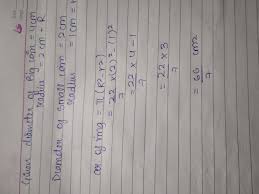 Given diameter of Big coin = 4cm
radius = 2cm = R
Diameter of small coin = 2cm
radius = 1cm = r
ar of img = π(R²-r²)
= 22/7 × (2)² - (1)²
= 22/7 × 4-1
= 22/7 × 3
= 66/7 cm²